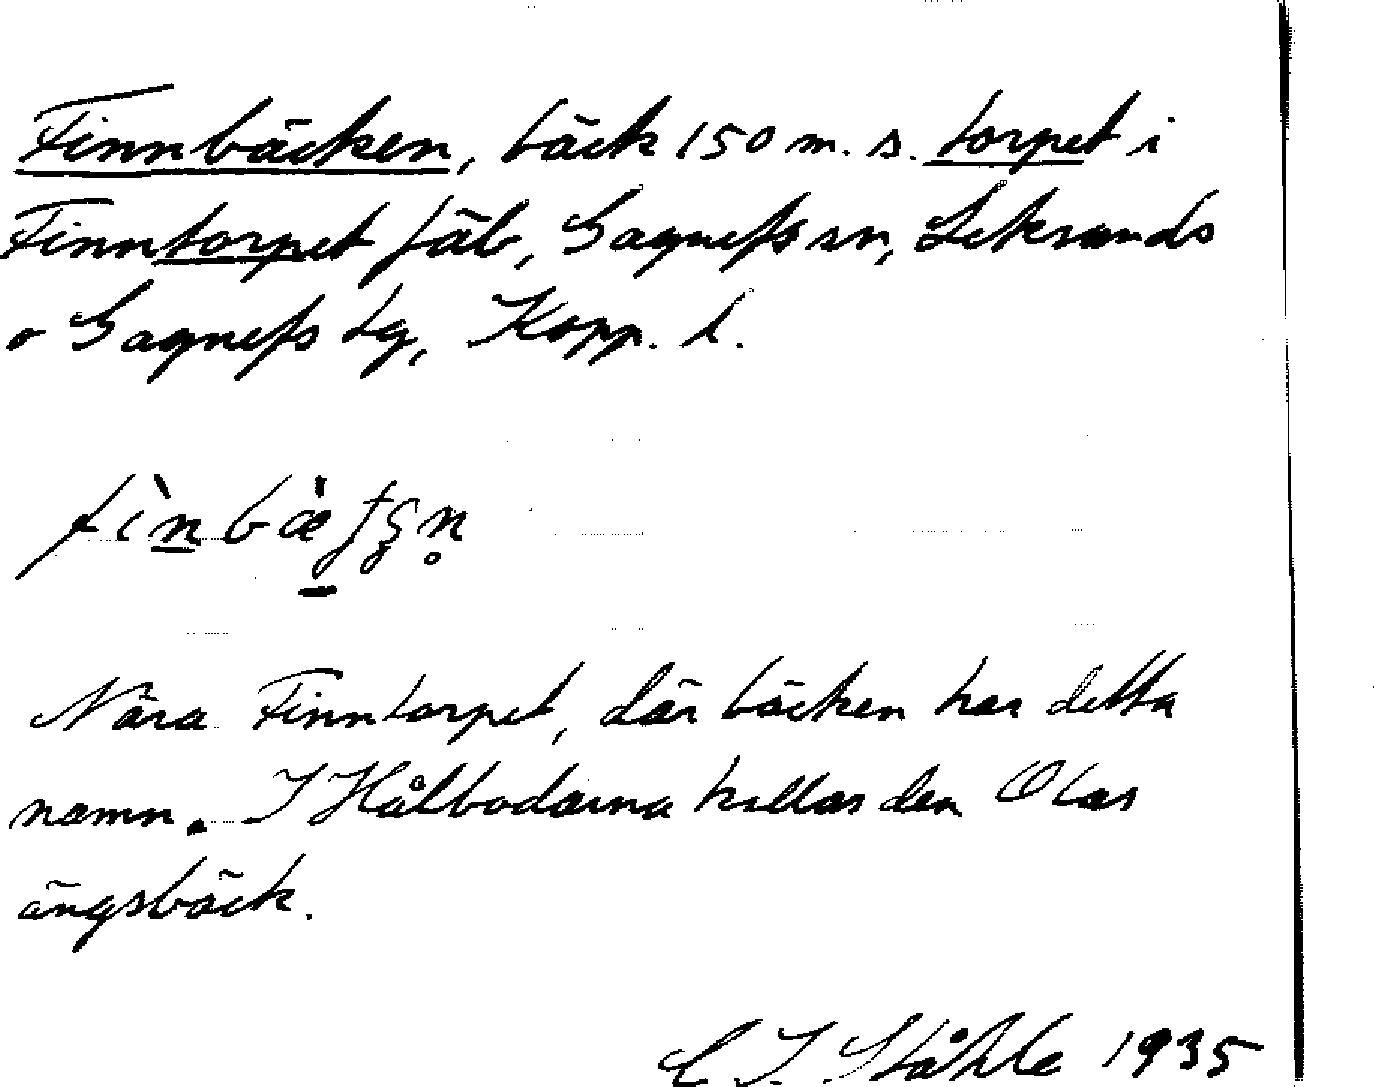 Finnbäcken, bäck 150 m. s. torpet i
Finntorpet fäb, Gagnefs sn, Leksands
o Gagnefs tg, Kopp. l.
Nära Finntorpet, där bäcken har detta
namn. I Hålbodarna kallas den Olars
ängsbäck.
C I Ståhle 1935